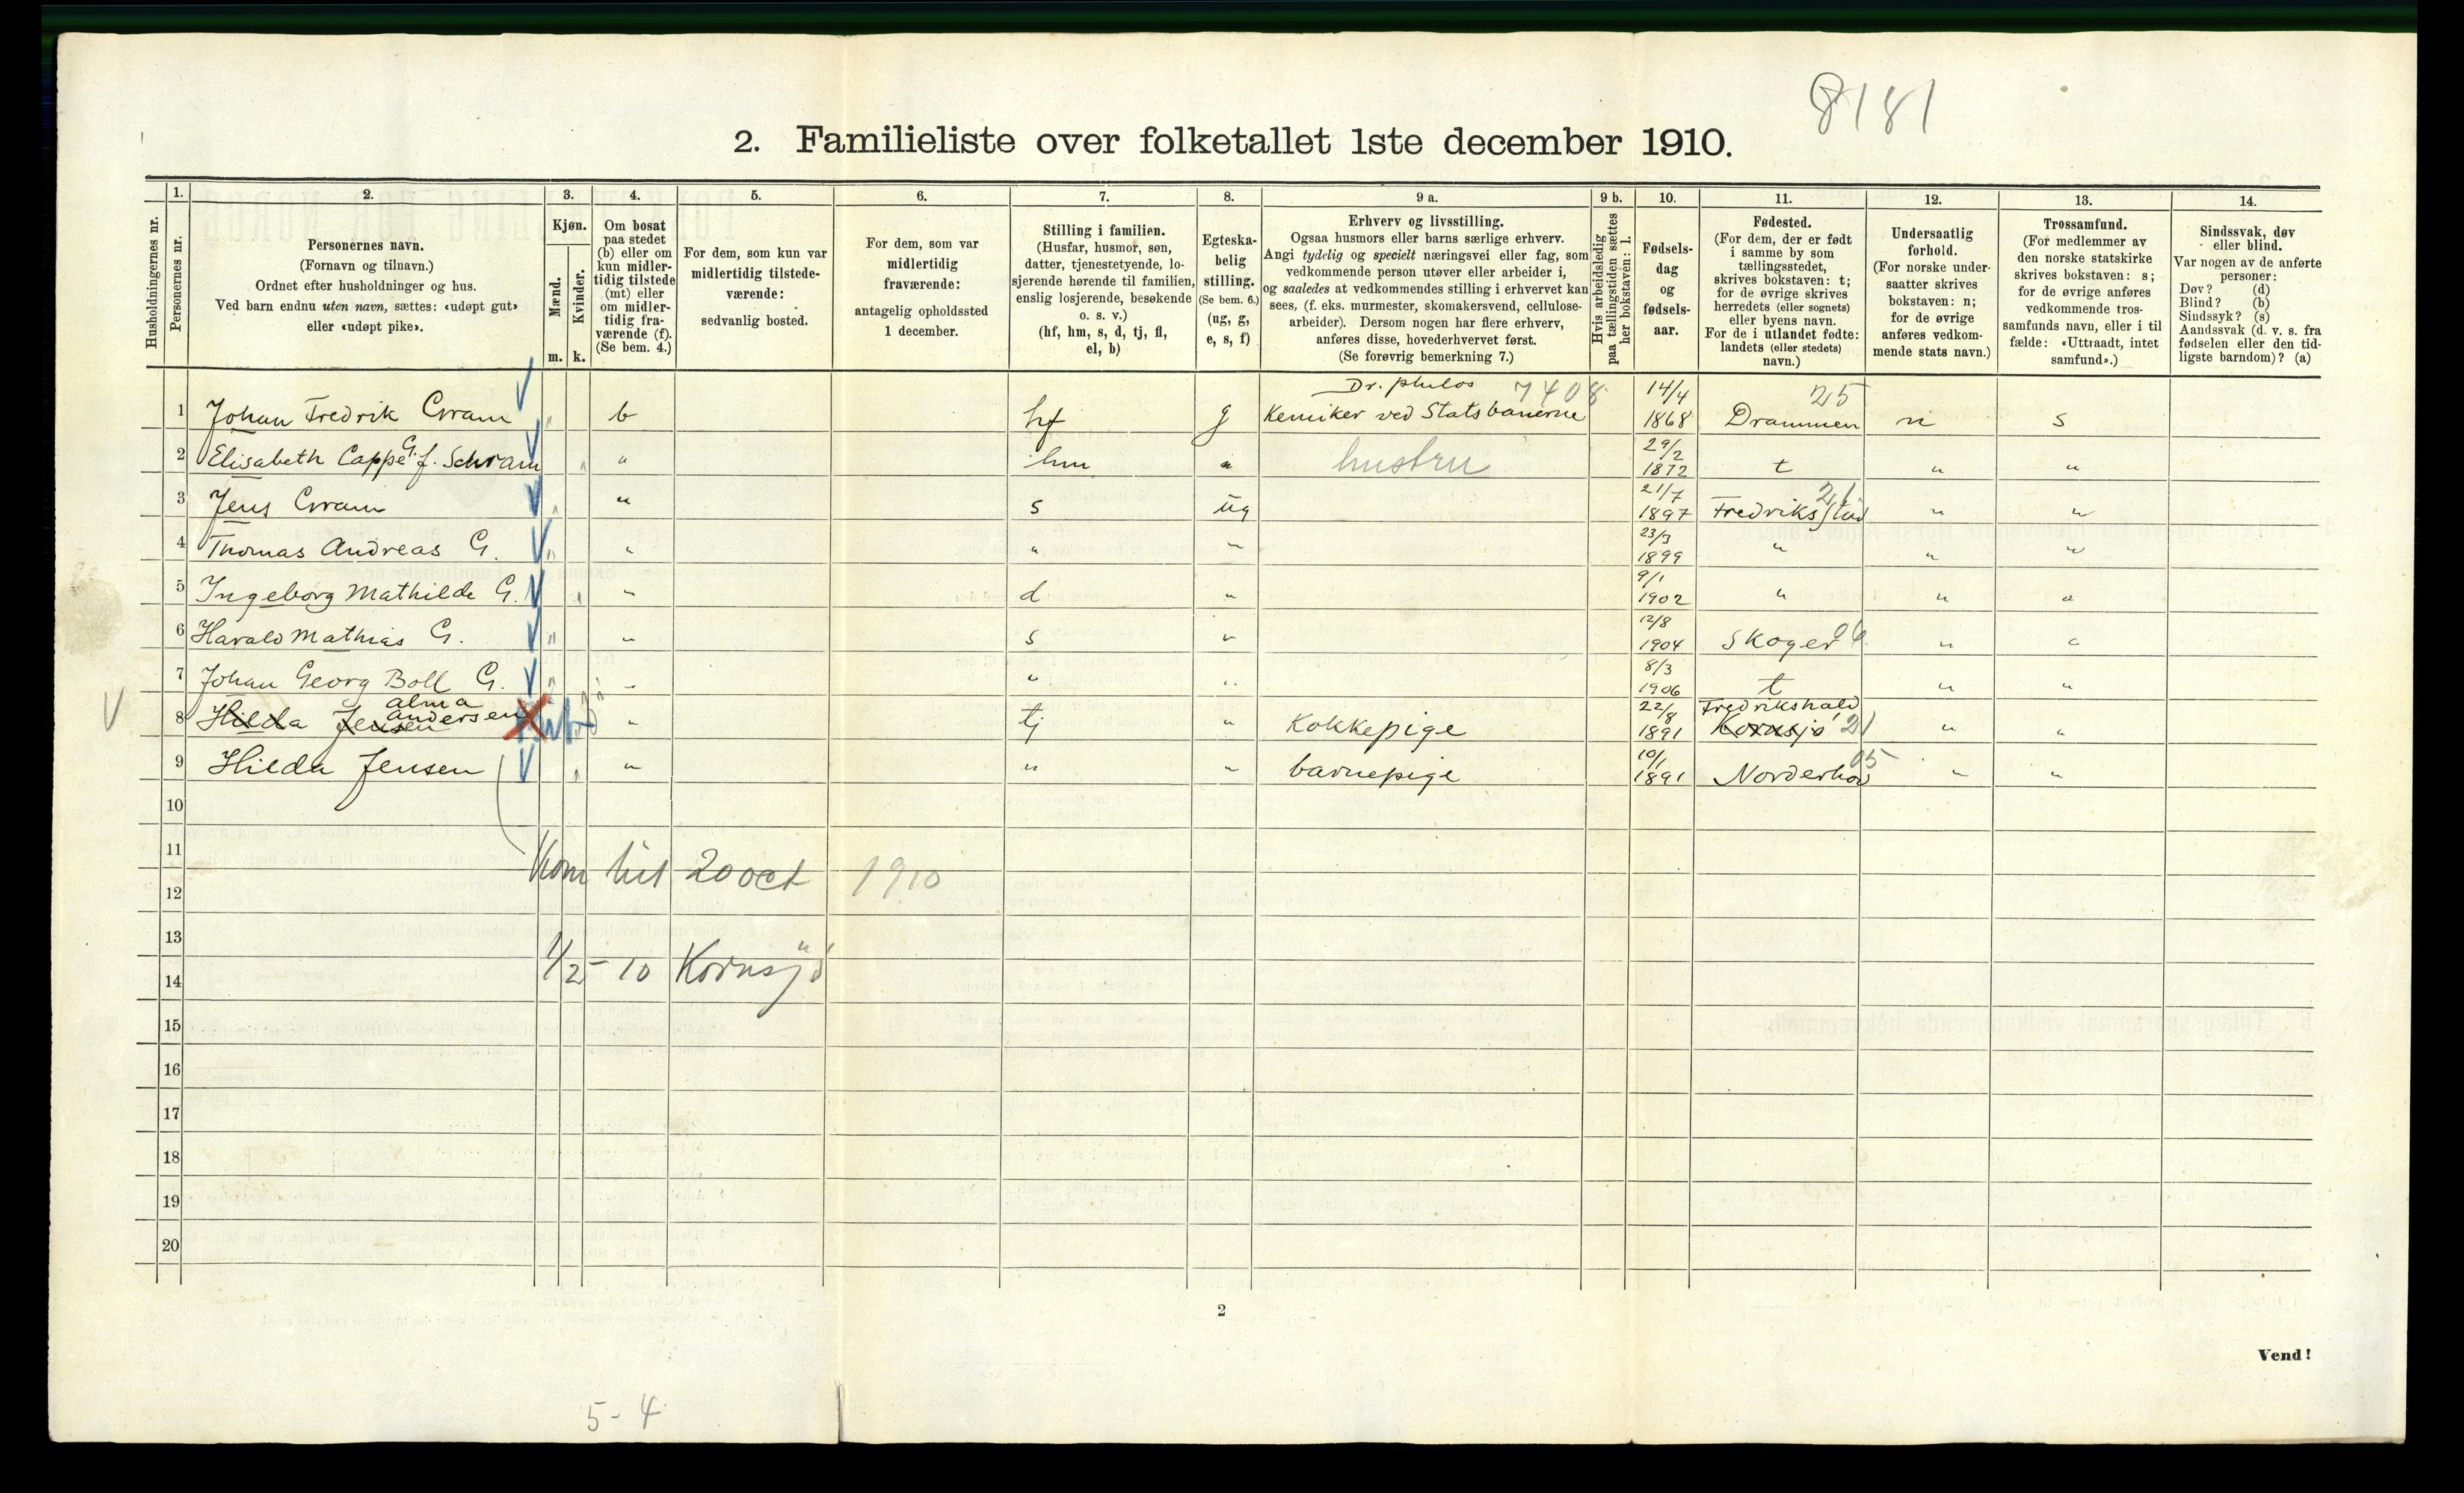 8181
2. Familieliste over folketallet 1ste december 1910.
Husholdningernes nr.
1.
Personernes nr.
2.
Personernes navn.
(Fornavn og tilnavn.)
Ordnet efter husholdninger og hus.
Ved barn endnu uten navn, sættes: «udøpt gut»
eller «udøpt pike».
3.
Kjøn.
Mænd.
Kvinder.
m. k.
4.
Om bosat
paa stedet
(b) eller om
kun midler-
tidig tilstede
(mt) eller
om midler-
tidig fra-
værende (f).
(Se bem. 4.)
5.
For dem, som kun var
midlertidig tilstede-
værende:
sedvanlig bosted.
6.
For dem, som var
midlertidig
fraværende:
antagelig opholdssted
1 december.
7.
Stilling i familien.
(Husfar, husmor, søn,
datter, tjenestetyende, lo-
sjerende hørende til familien,
enslig losjerende, besøkende
o. s. v.)
(hf, hm, s, d, tj, fl,
el, b)
8.
Egteska-
belig
stilling.
(Se bem. 6.)
(ug, g,
e, s, f)
9 a.
Erhverv og livsstilling.
Ogsaa husmors eller barns særlige erhverv.
Angi tydelig og specielt næringsvei eller fag, som
vedkommende person utøver eller arbeider i,
og saaledes at vedkommendes stilling i erhvervet kan
sees, (f. eks. murmester, skomakersvend, cellulose-
arbeider). Dersom nogen har flere erhverv,
anføres disse, hovederhvervet først.
(Se forøvrig bemerkning 7.)
9 b.
Hvis arbeidsledig
paa tællingstiden sættes
her bokstaven: l.
10.
Fødsels-
dag
og
fødsels-
aar.
11.
Fødested.
(For dem, der er født
i samme by som
tællingsstedet,
skrives bokstaven: t;
for de øvrige skrives
herredets (eller sognets)
eller byens navn.
For de i utlandet fødte:
landets (eller stedets)
navn.)
12.
Undersaatlig
forhold.
(For norske under-
saatter skrives
bokstaven: n;
for de øvrige
anføres vedkom-
mende stats navn.)
13.
Trossamfund.
(For medlemmer av
den norske statskirke
skrives bokstaven: s;
for de øvrige anføres
vedkommende tros-
samfunds navn, eller i til
fælde: «Uttraadt, intet
samfund».)
14.
Sindssvak, døv
eller blind.
Var nogen av de anførte
personer:
Døv? (d)
Blind? (b)
Sindssyk? (s)
Aandssvak (d. v. s. fra
fødselen eller den tid-
ligste barndom)? (a)
Dr. philos 7408 14/4 25
1 Johan Fredrik Gram " b hf g Kemiker ved Statsbanerne 1868 Drammen n s
2 Elisabeth Cappe G. f. Schram " " hm " hustru 29/2 1872 t " "
3 Jens Gram " " s ug 21/7 1897 Fredriksstad 21 " "
4 Thomas Andreas G. " " " " 23/3 1899 " " "
5 Ingeborg Mathilde G. " " d " 9/1 1902 " " "
6 Harald Mathias G. " " s " 12/8 1904 Skoger " "
7 Johan Georg Boll G. " " " " 8/3 1906 t " "
alma Fredrikshald
8 Hilda Jensen andersen " tj " Kokkepige 22/8 1891 Kornsjö 21 " "
9 Hilda Jensen " " " " barnepige 10/1 1891 Norderhov 05 " "
10
11
Kom hit 20 oct 1910
12
13
1/2 - 10 Kornsjö
14
15
16
17
18
19
20
2
Vend!
5-4